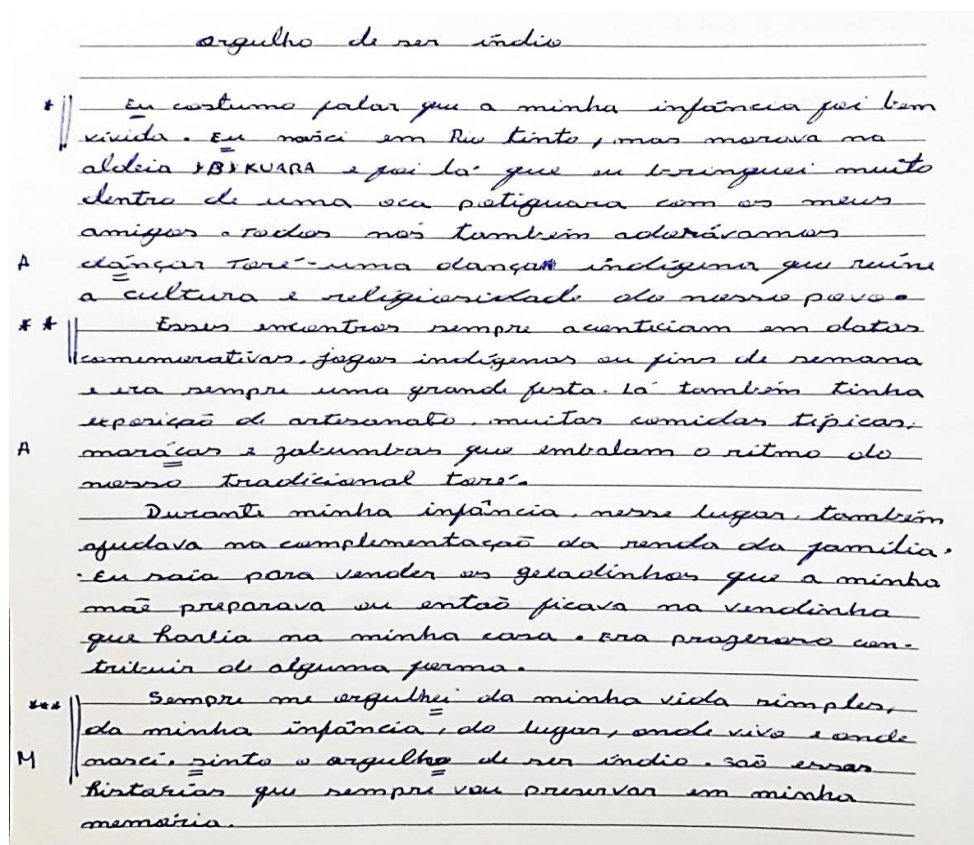 orgulho de ser índio
* Eu costumo falar que a minha infância foi bem
vivida. Eu nasci em Rio tinto, mas morava na
aldeia IBIKUARA e foi lá que eu brinquei muito
dentro de uma oca potiguara com os meus
amigos. todos nós também adorávamos
A dânçar Toré - uma dança indígena que reúne
a cultura e religiosidade do nosso povo.
** Esses encontros sempre aconteciam em datas
comemorativas, jogos indígenas ou fins de semana
e era sempre uma grande festa. Lá também tinha
exposição de artesanato, muitas comidas típicas,
A marácas e zabumbas que embalam o ritmo do
nosso tradicional toré.
Durante minha infância, nesse lugar, também
ajudava na complementação da renda da família.
Eu saia para vender os geladinhos que a minha
mãe preparava ou então ficava na vendinha
que havia na minha casa. Era prazeroso con-
tribuir de alguma forma.
*** Sempre me orgulhei da minha vida simples,
da minha infância, do lugar, onde vivo e onde
M nasci. sinto o orgulho de ser índio. são essas
histórias que sempre vou preservar em minha
memória.